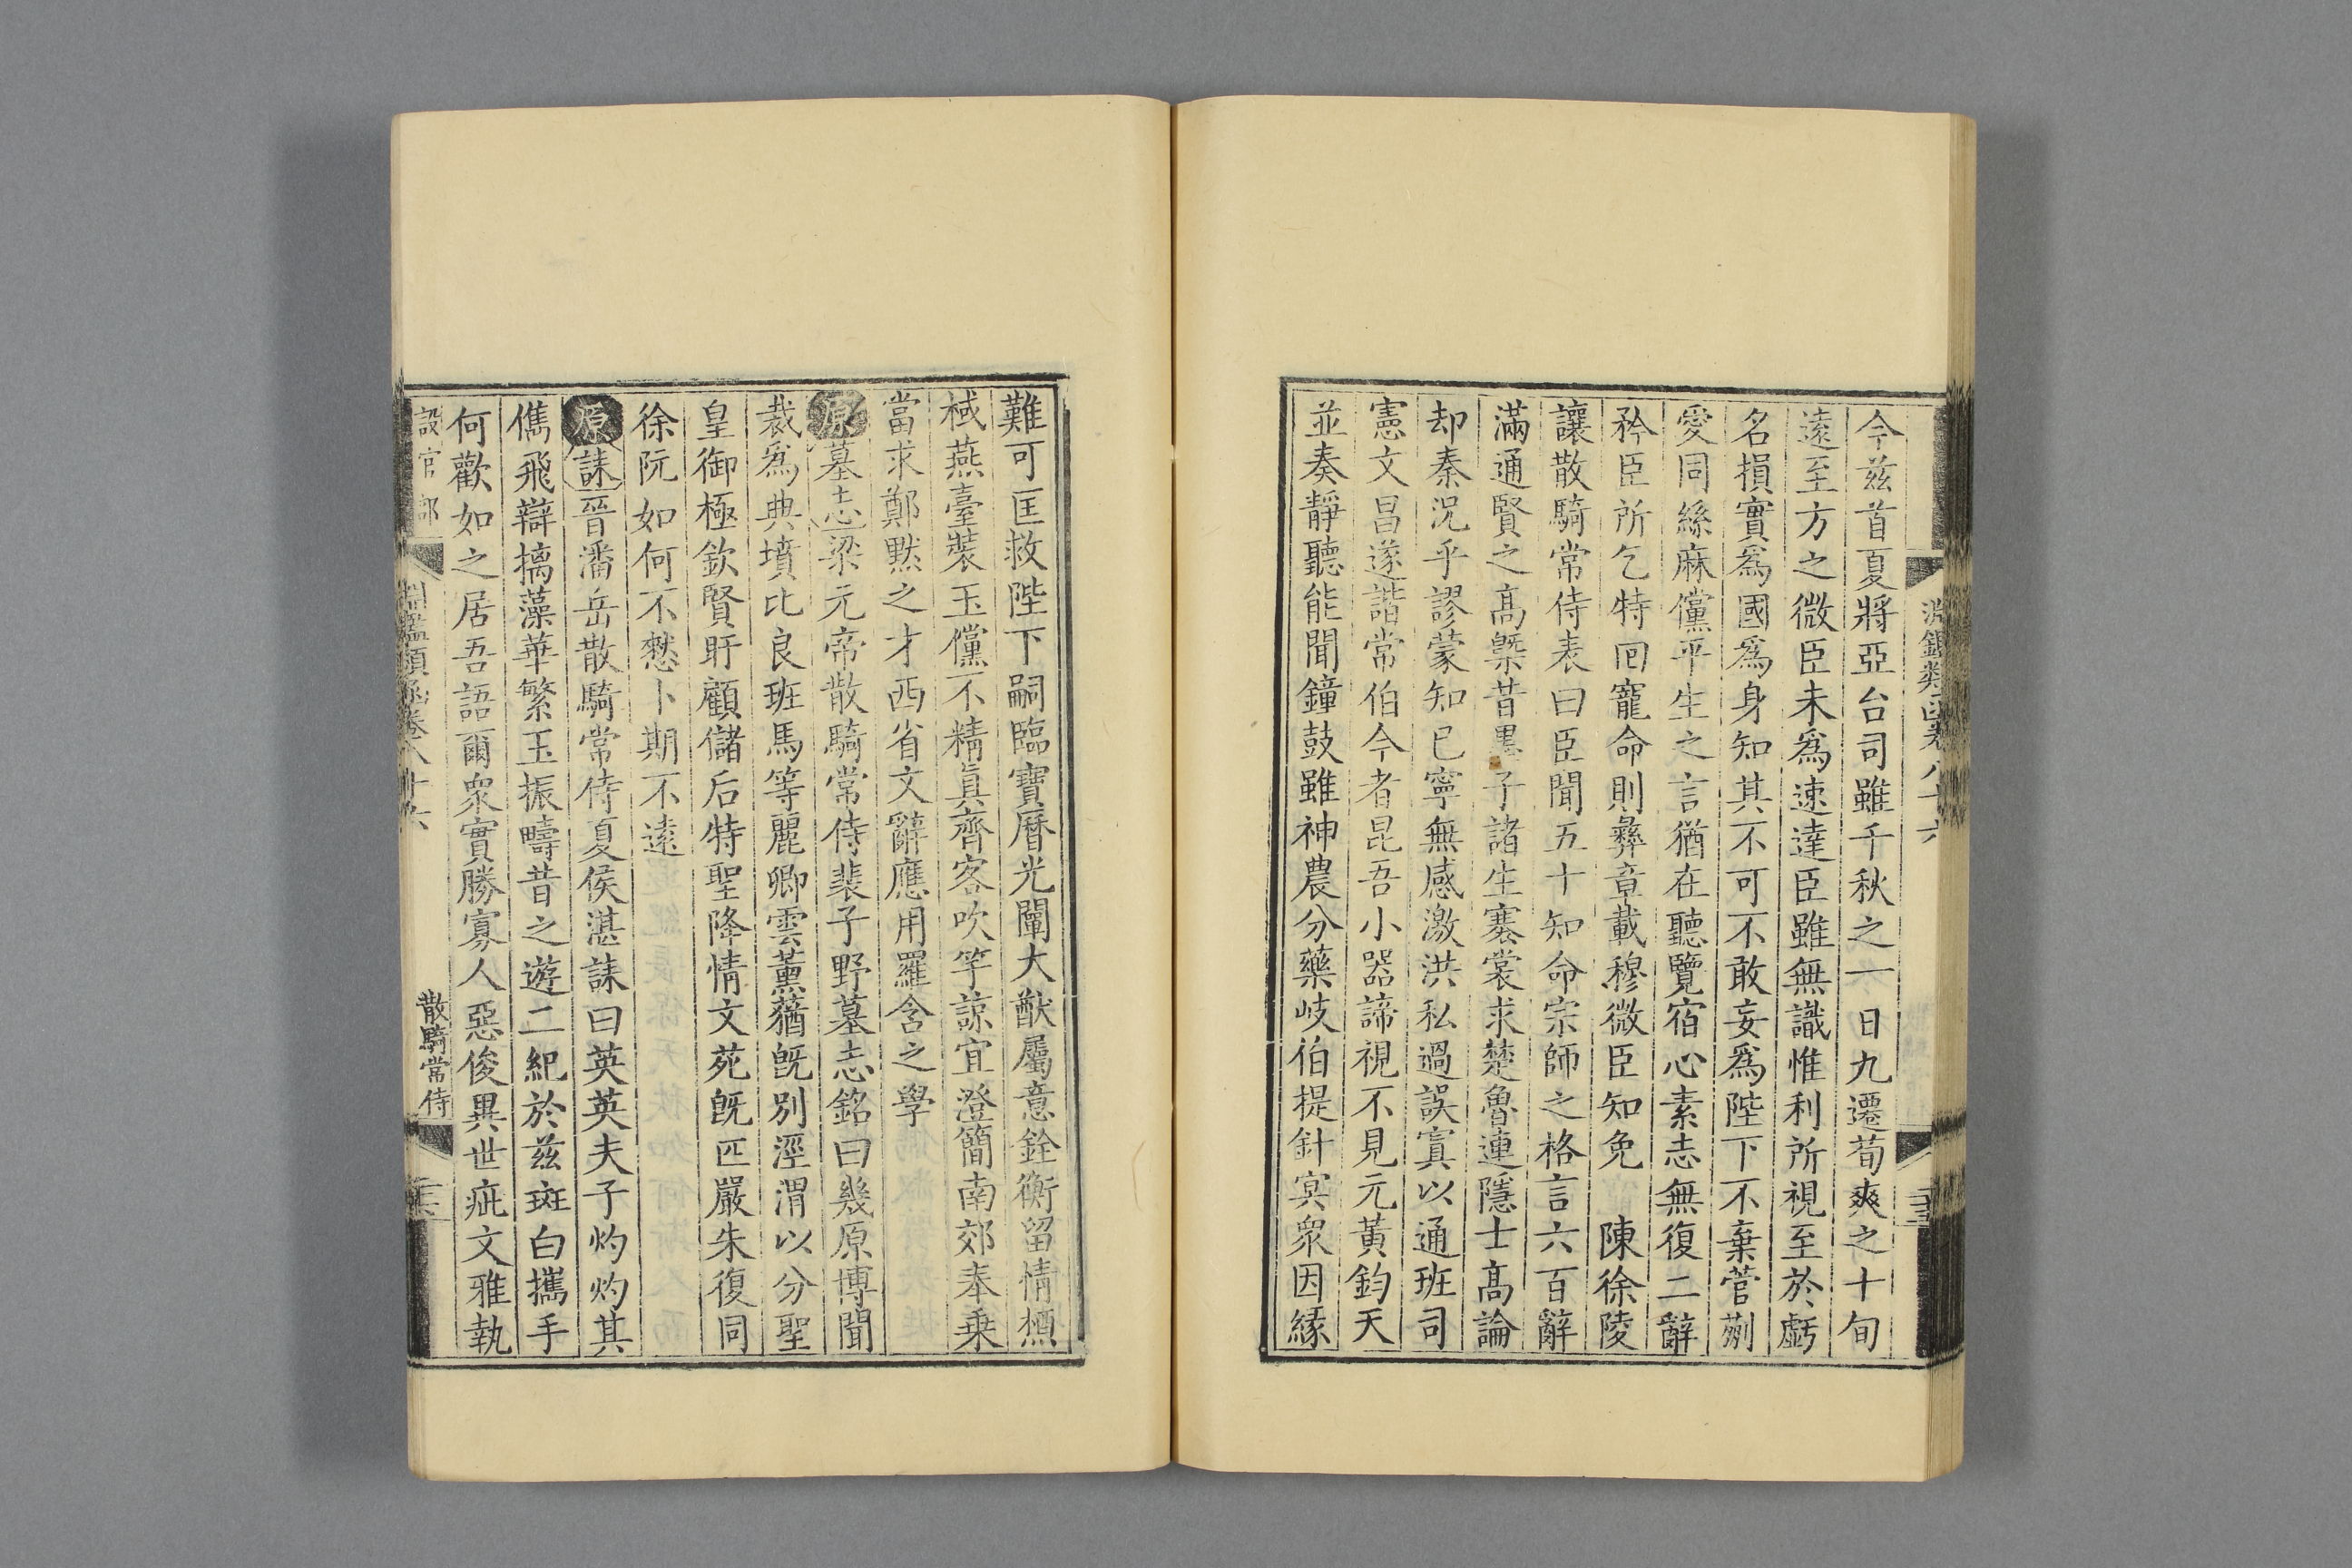 今茲首夏將亞台司雖千秋之一日九遷荀爽之十旬
遠至方之微臣未爲速達臣雖無識惟利所視至於虧
名損實爲國爲身知其不可不敢妄爲陛下不棄菅蒯
愛同絲麻儻平生之言猶在聽覽宿心素志無復二辭
矜臣所乞特囘寵命則彝章載穆微臣知免　陳徐陵
讓散騎常侍表曰臣聞五十知命宗師之格言六百辭
滿通賢之高槩昔墨子諸生褰裳求楚魯連隱士高論
却秦況乎謬蒙知已寧無感激洪私過誤寘以通班司
憲文昌遂諧常伯今者昆吾小器諦視不見元黃鈞天
並奏靜聽能聞鐘鼓雖神農分藥岐伯提針冥衆因緣
難可匡救陛下嗣臨寶曆光闡大猷屬意銓衡留情槱
棫燕臺裝玉儻不精眞齊客吹竽諒宜澄簡南郊奉乗
當求鄭默之才西省文辭應用羅含之學
原墓志梁元帝散騎常侍裴子野墓志銘曰幾原博聞
裁爲典墳比良班馬等麗卿雲薰蕕旣別涇渭以分聖
皇御極欽賢盱顧儲后特聖降情文苑旣匹嚴朱復同
徐阮如何不慭卜期不遠
原誄晉潘岳散騎常侍夏侯湛誄曰英英夫子灼灼其
儁飛辯摛藻華繁玉振疇昔之遊二紀於茲斑白攜手
何歡如之居吾語爾衆實勝寡人惡俊異世疵文雅執
設官部
淵鑑類函卷八十六
散騎常侍